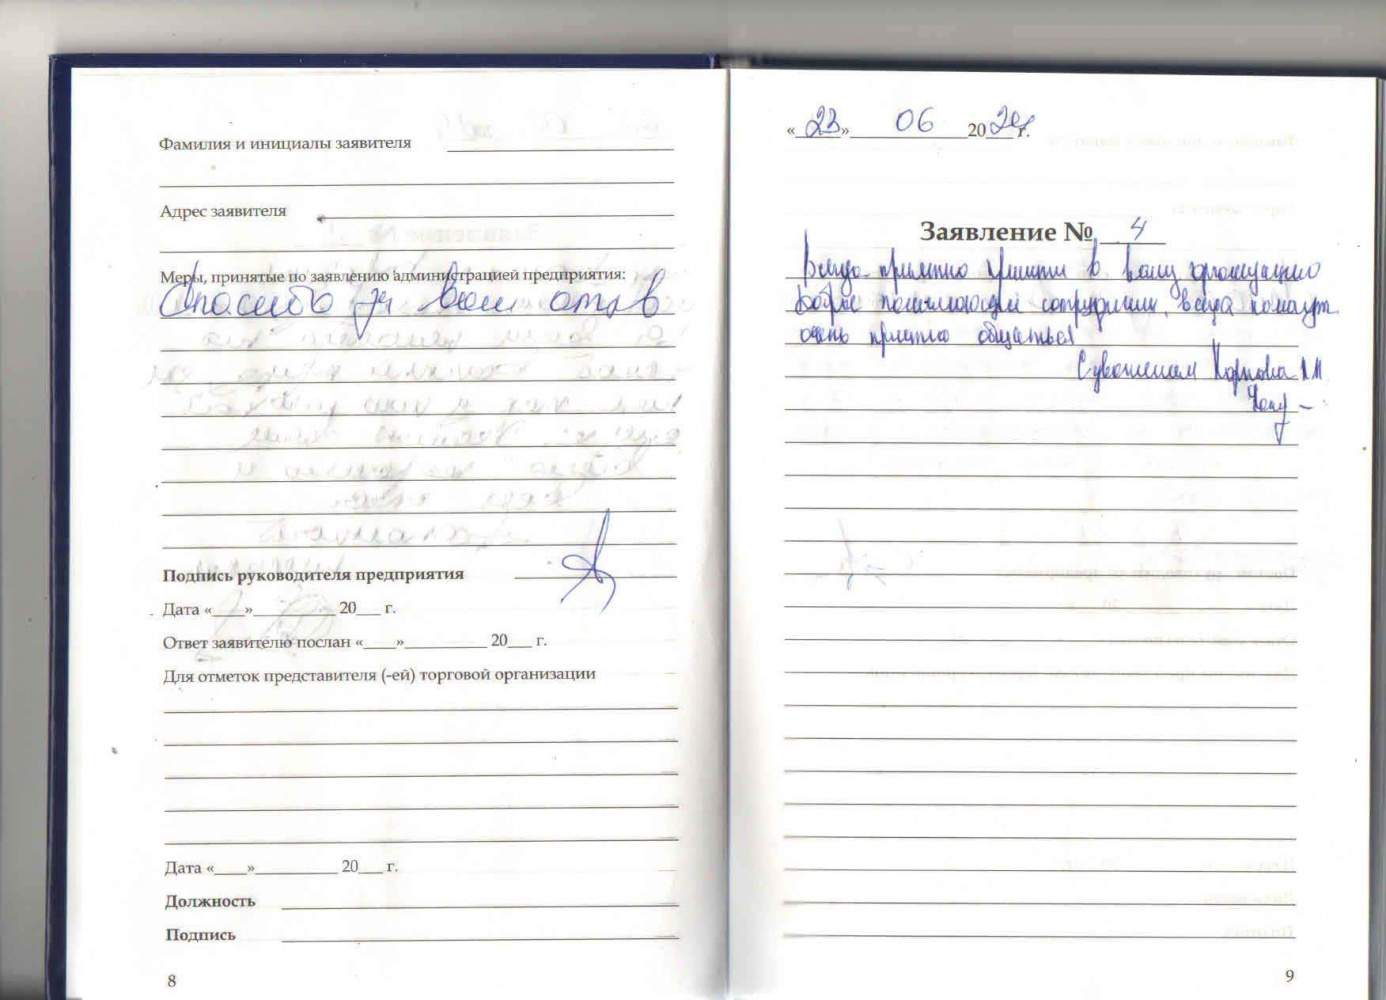 Фамилия и инициалы заявителя
Адрес заявителя
Меры, принятые по заявлению администрацией предприятия:
Спасибо за ваш отзыв
Подпись руководителя предприятия
Дата «___»__________ 20___ г.
Ответ заявителю послан «____»__________ 20___ г.
Для отметок представителя (-ей) торговой организации
Дата «____»__________ 20___ г.
Должность
Подпись
8
«23» 06 2024 г.
Заявление № 4
Всегда приятно прийти в вашу организацию
добрые понимающие сотрудники, всегда помогут
очень приятно общаться
С уважением
9